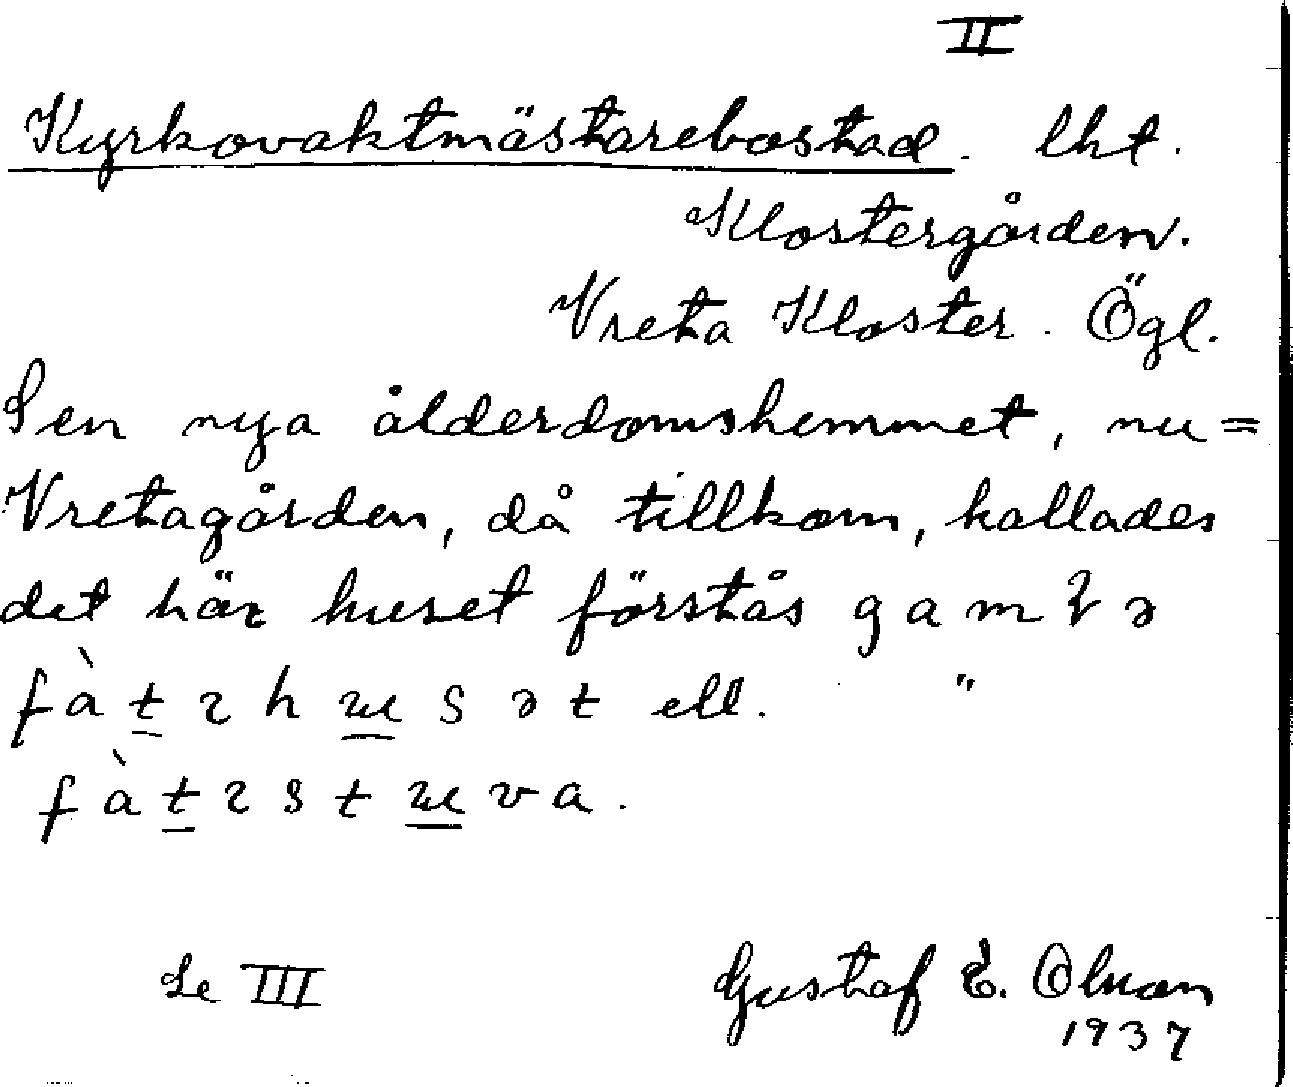 II
Kyrkovaktmästarebostad. lht.
Klostergården.
Vreta Kloster. Ögl.
Sen nya ålderdomshemmet, nu=
Vretagården, då tillkom, kallades
det här huset förstås gamɫə
fàtɿhɯsət ell. "
fàtɿstɯva.
Se III Gustaf E. Olsson
1937